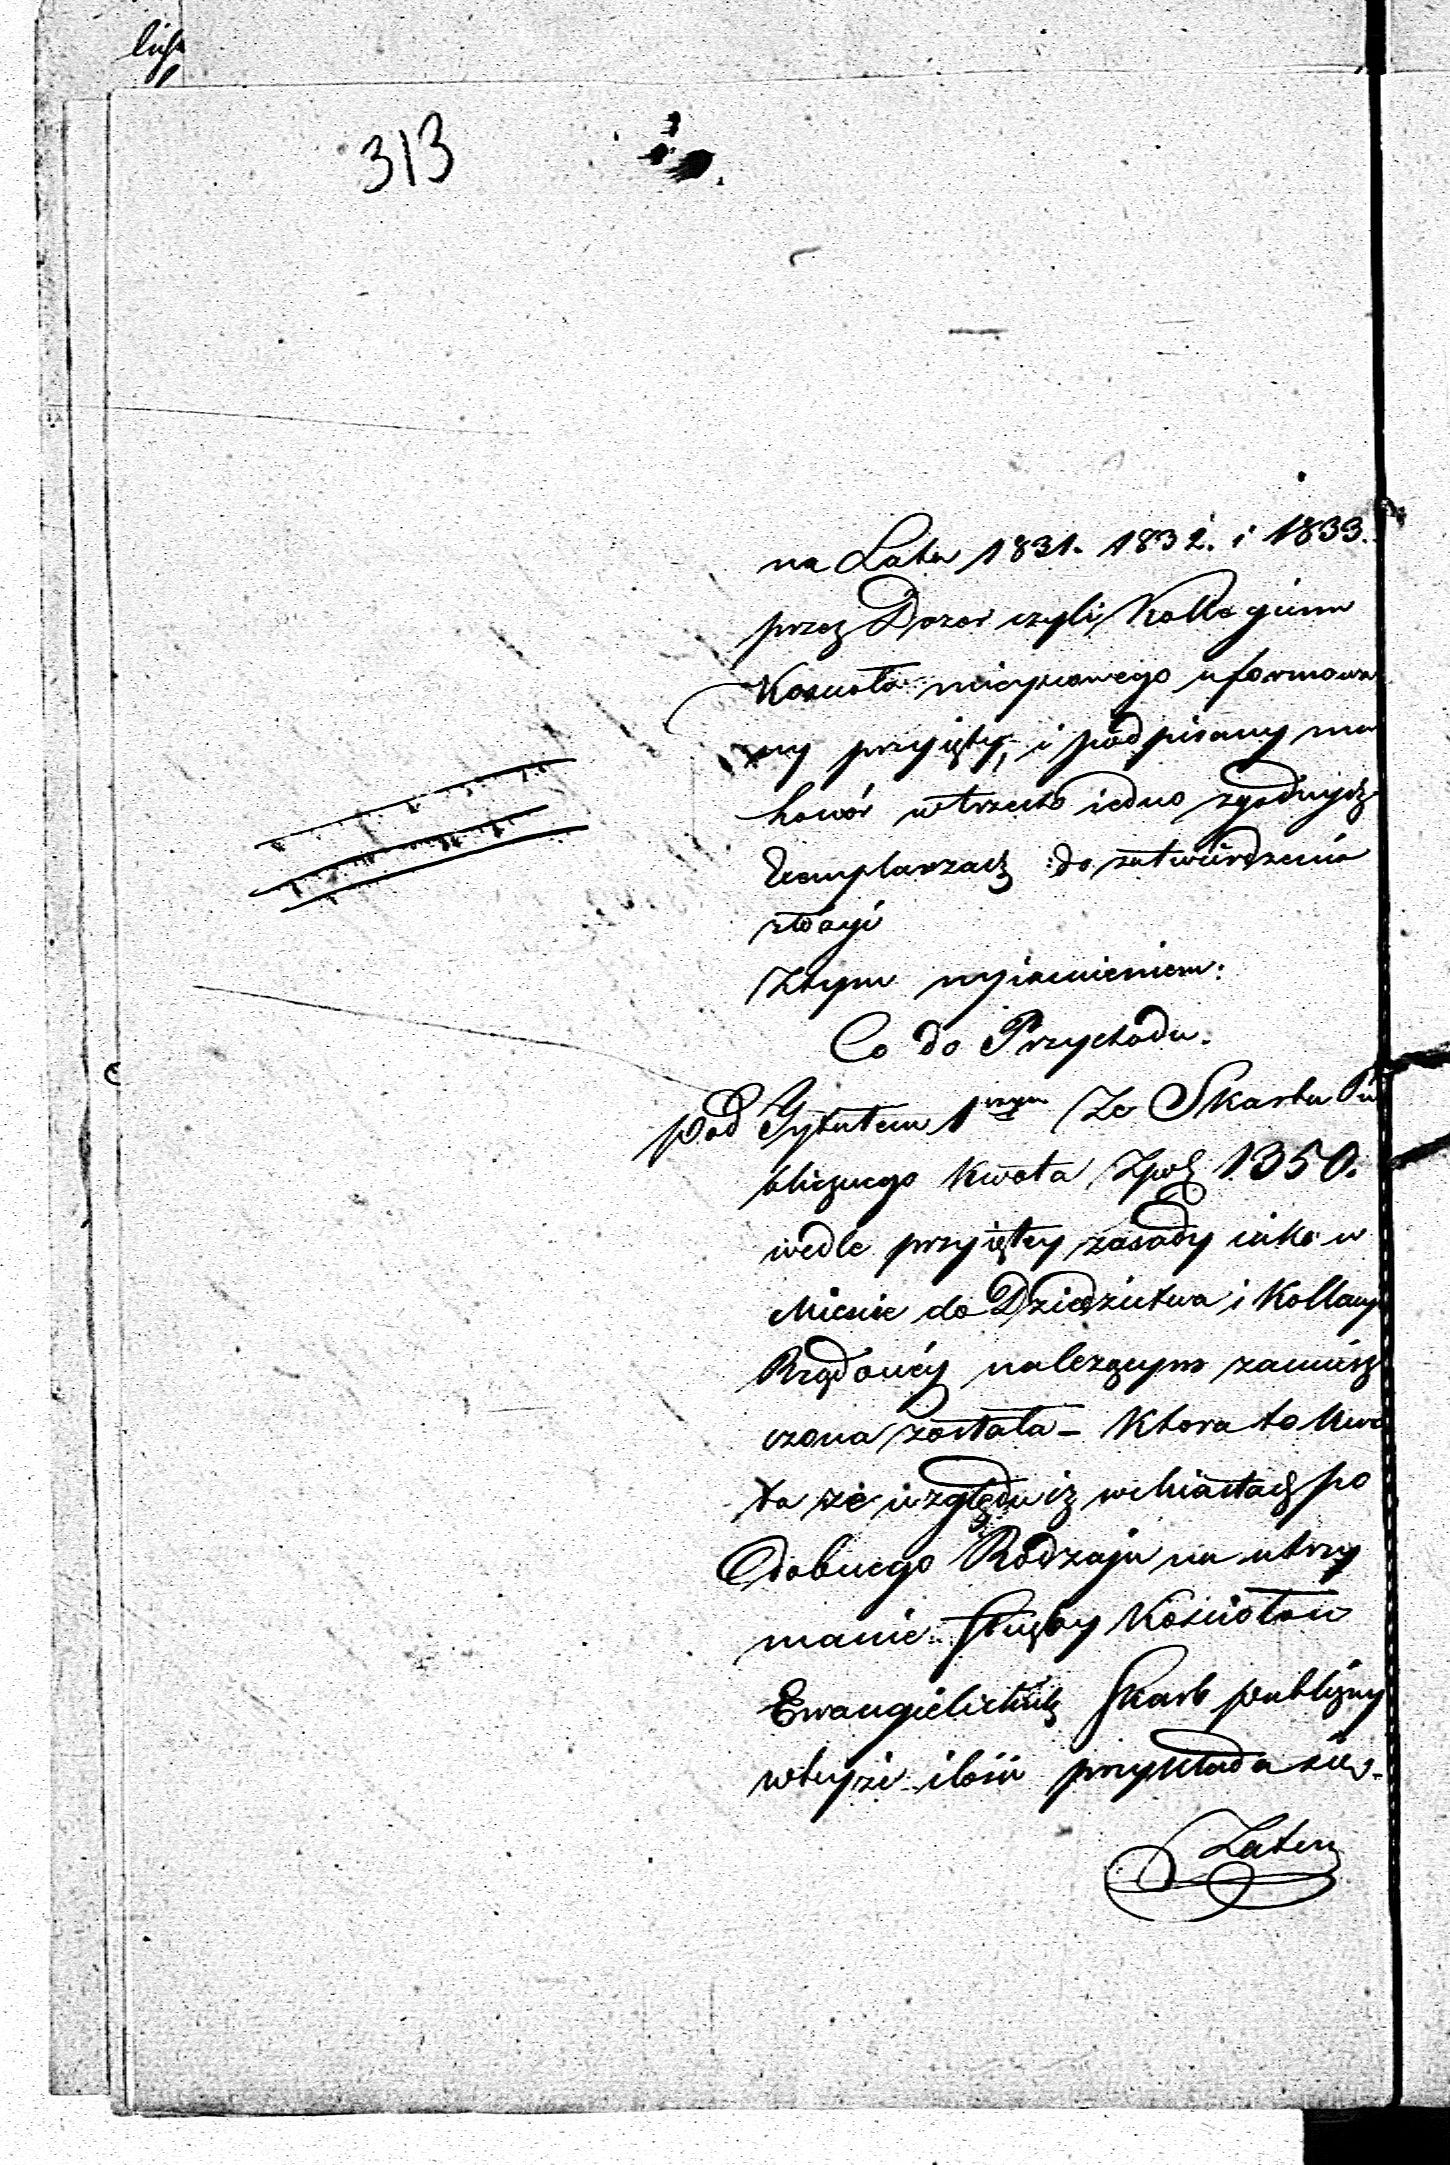 313
na Lata 1831. 1832. i 1833.
przez Dozor czyli Kollegium
Kosciola mieyscowego uformowa
ny przyięty, i podpisany ma
honór w trzech iedno zgodnych
Exemplarzach do zatwierdzenia
złożyć
Ztym wyiasnieniem:
Co do Przychodu.
pod Tytułem 1wszym Ze Skarbu Pu
blicznego kwota Zpol 1350.
wedle przyiętey zasady iako w
Miescie do Dziedzictwa i Kollacyi
Rządowéy należącym zamiesz
czona została – Ktora to kwo
ta ze względu iż w Miastach po
dobnego Rodzaju na utrzy
manie Służby Kościołow
Ewangielickich Skarb publiczny
w teyże ilości przykłada się.
Zatem